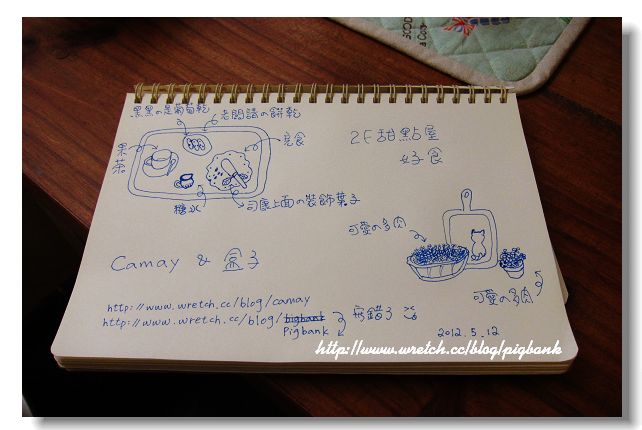 黑黑の是葡萄乾
老闆請の餅乾
2F 甜點屋
好食
糖水
司康上面の裝飾葉子
可愛の多肉
Camay & 盒子
可愛の多肉
http://www.wretch.cc/blog/camay
http://www.wretch.cc/blog/bigbank
Pigbank
寫錯了
2012.5.12
http://www.wretch.cc/blog/pigbank